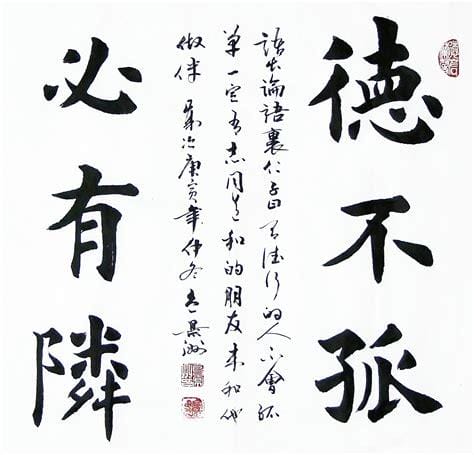 德不孤
語出論語裏仁子曰有德行的人不會孤
單一定有志同道和的朋友来和他
做伴 歲次庚寅年仲冬 景洲
必有隣